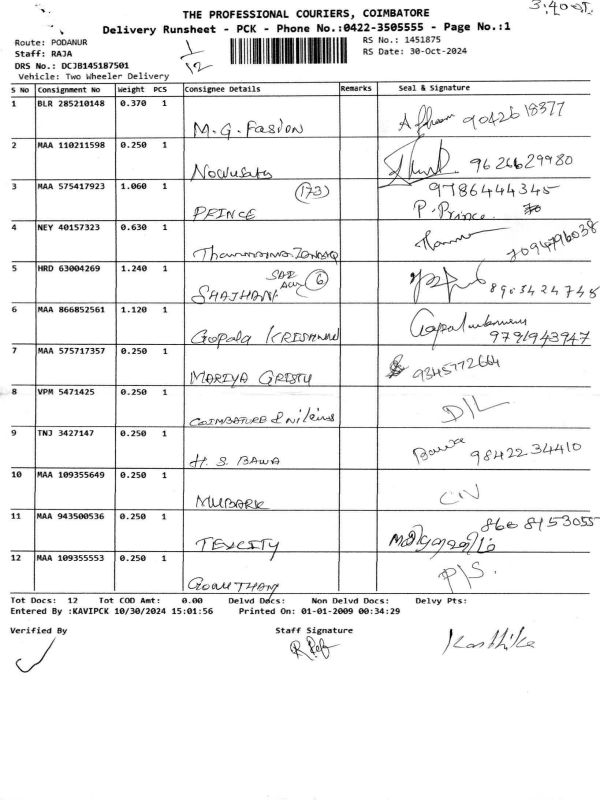 3:40
THE PROFESSIONAL COURIERS, COIMBATORE
Delivery Runsheet - PCK - Phone No.:0422-3505555 - Page No.:1
Route: PODANUR 1/12 RS No.: 1451875
Staff: RAJA RS Date: 30-Oct-2024
DRS No.: DCJB145187501
Vehicle: Two Wheeler Delivery
S No Consignment No Weight PCS Consignee Details Remarks Seal & Signature
1 BLR 285210148 0.370 1
M.G. Fasion 9042618377
2 MAA 110211598 0.250 1
9626629980
3 MAA 575417923 1.060 1 (173) 9786444345
PRINCE P. Prince
4 NEY 40157323 0.630 1
7094796038
5 HRD 63004269 1.240 1 6
SHAJHAN 8903424748
6 MAA 866852561 1.120 1
Gopala KRISHNAN 9791943947
7 MAA 575717357 0.250 1
MARIYA GRISTY 9345772664
8 VPM 5471425 0.250 1
COIMBATORE & D/L
9 TNJ 3427147 0.250 1
H. S. BAWA Bawa 98422 34410
10 MAA 109355649 0.250 1
MUBARK
11 MAA 943500536 0.250 1 8668153055
TEXCITY
12 MAA 109355553 0.250 1
GOWTHAM P/S.
Tot Docs: 12 Tot COD Amt: 0.00 Delvd Docs: Non Delvd Docs: Delvy Pts:
Entered By :KAVIPCK 10/30/2024 15:01:56 Printed On: 01-01-2009 00:34:29
Verified By Staff Signature
Karthika